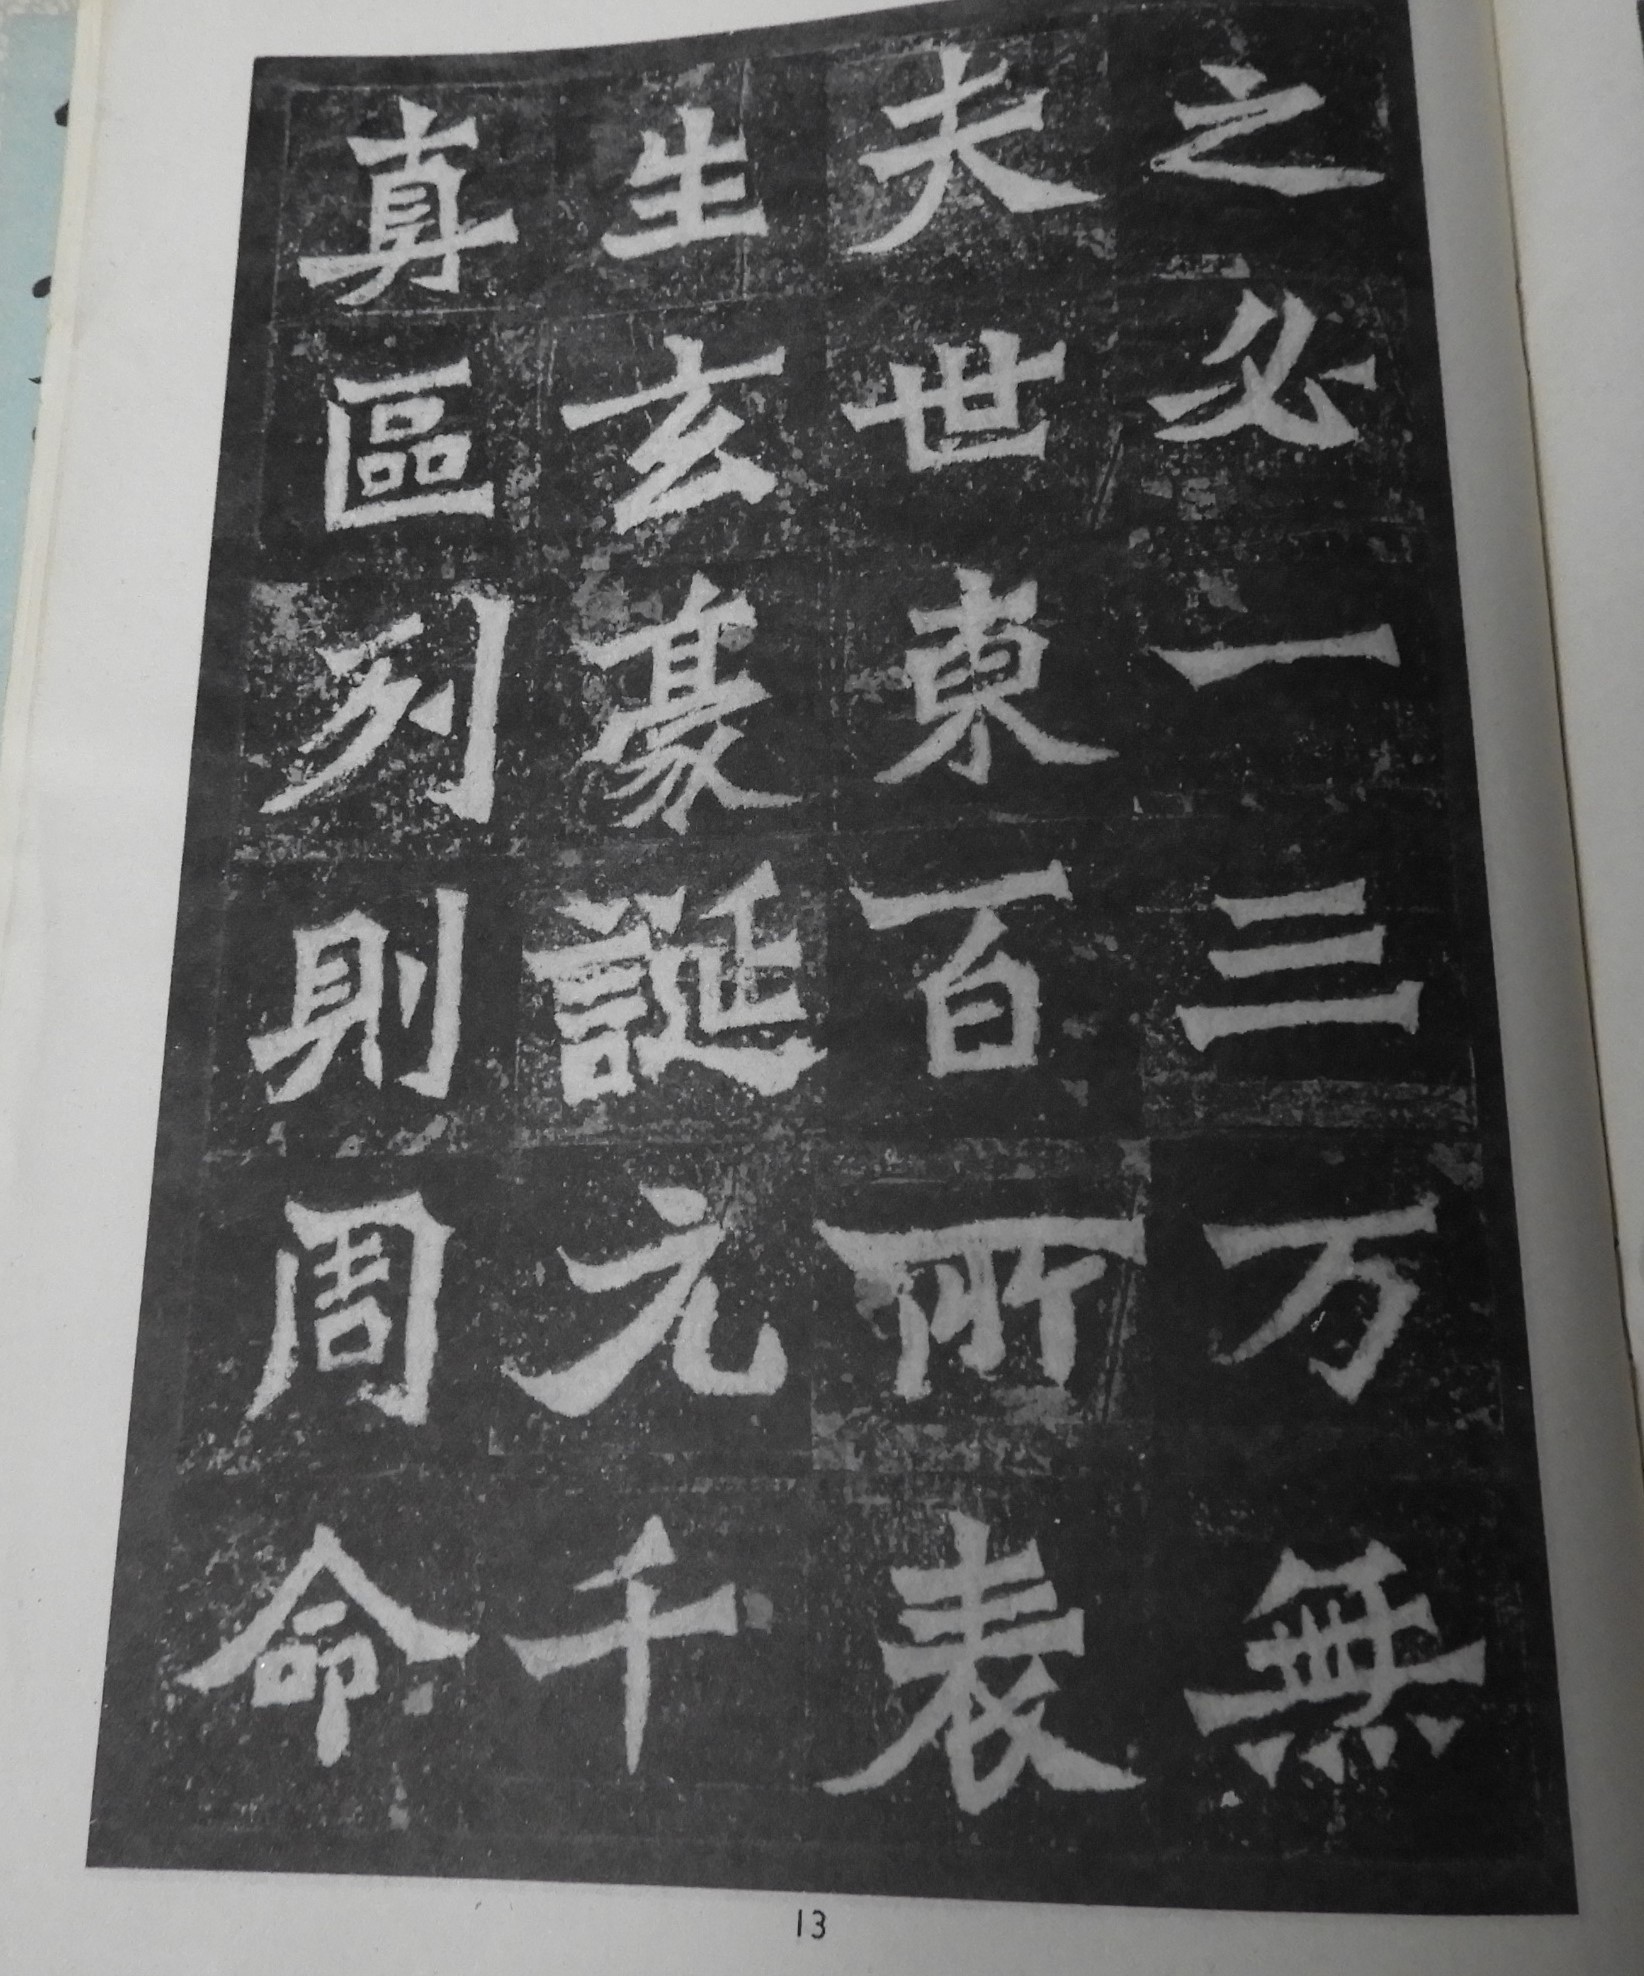 之必一三万無
夫世東百所表
生玄豪誕元千
真區列則周命
13